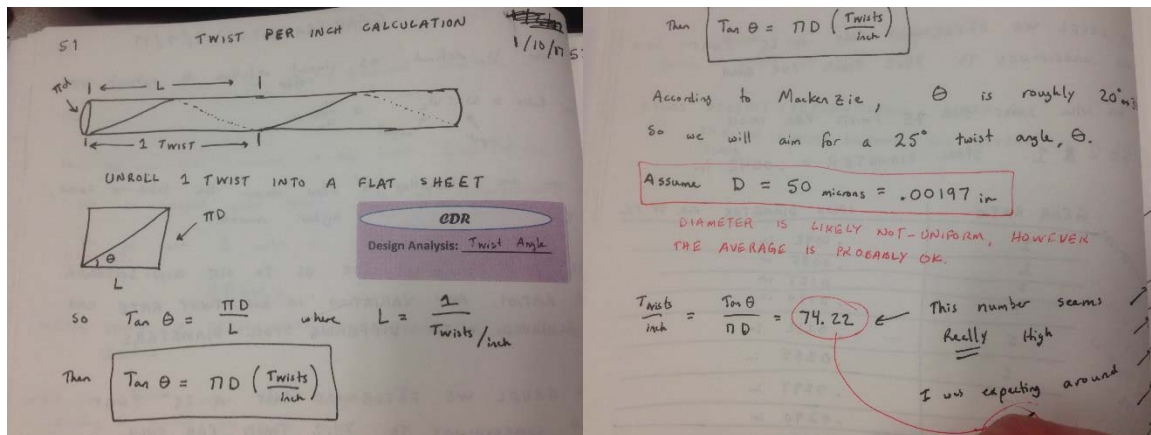 51
TWIST PER INCH CALCULATION
1/10/17
πd
L
1 TWIST
UNROLL 1 TWIST INTO A FLAT SHEET
πD
θ
L
CDR
Design Analysis: Twist Angle
So Tan θ = πD / L where L = 1 / Twists/inch
Then Tan θ = πD (Twists/inch)
Then Tan θ = πD (Twists/inch)
According to Mackenzie, θ is roughly 20°
So we will aim for a 25° twist angle, θ.
Assume D = 50 microns = .00197 in
DIAMETER IS LIKELY NOT-UNIFORM, HOWEVER
THE AVERAGE IS PROBABLY OK.
Twists/inch = Tan θ / πD = 74.22 ← This number seems
Really High
I was expecting around